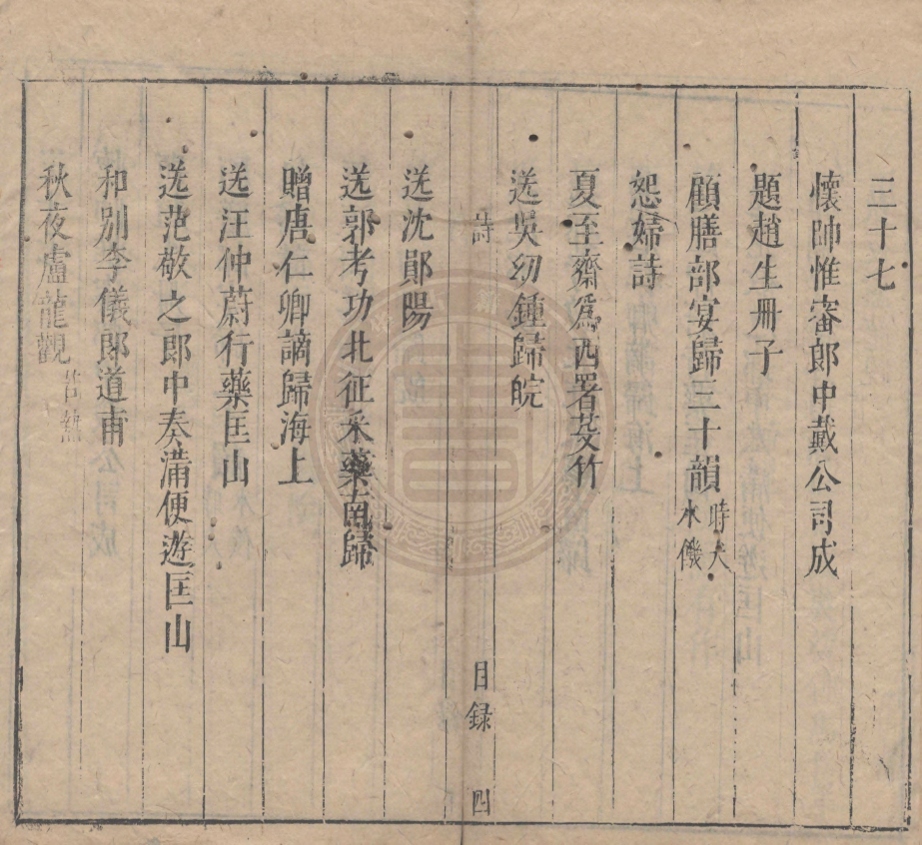 三十七
懷帥惟審郎中戴公司成
題趙生冊子
顧膳部宴歸三十韻 時大水饑
恕婦詩
夏至齋爲西署芟竹
送吳幼鍾歸皖
詩 目錄 四
送沈鄖陽
送郭考功北征采藥南歸
贈唐仁卿謫歸海上
送汪仲蔚行藥匡山
送范敬之郎中奏滿便遊匡山
和別李儀郎道甫
秋夜盧龍觀 苦熱